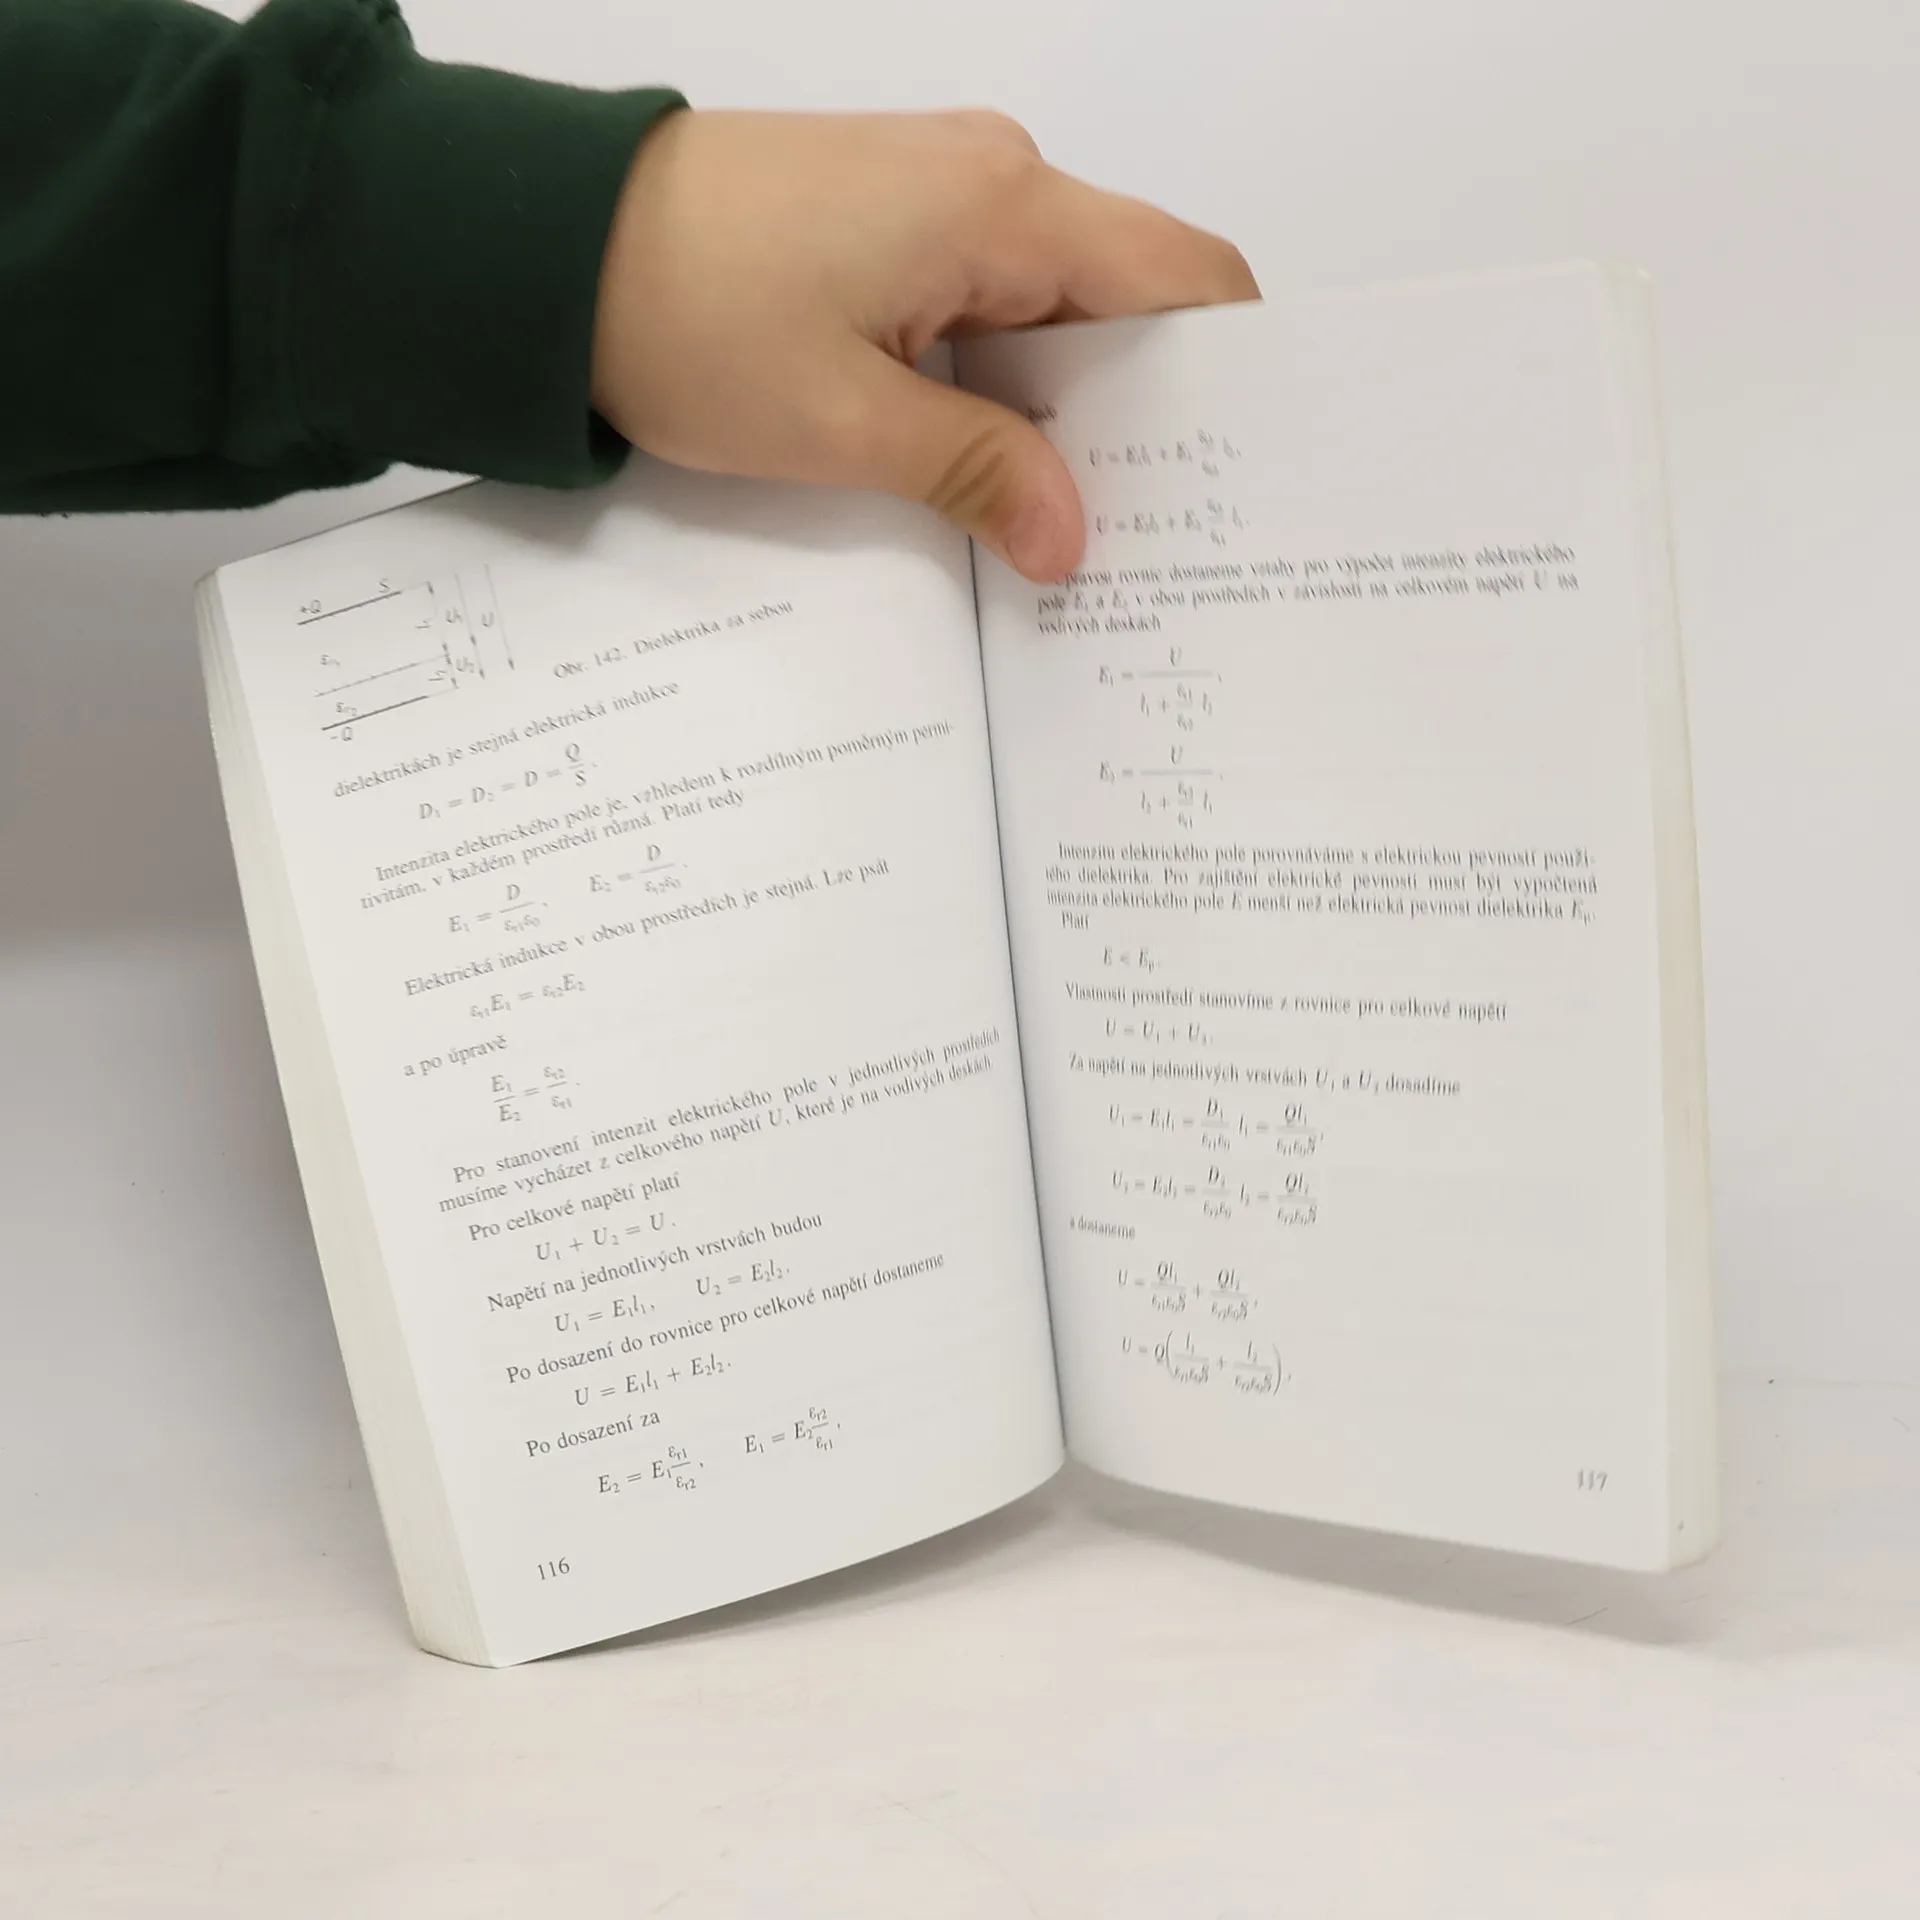 +Q S
U₁ U
εr1
U₂
εr2
-Q
Obr. 142. Dielektrika za sebou
dielektrikách je stejná elektrická indukce
D₁ = D₂ = D = Q/S.
Intenzita elektrického pole je, vzhledem k rozdílným poměrným permi-
tivitám, v každém prostředí různá. Platí tedy
E₁ = D/(εr1ε₀), E₂ = D/(εr2ε₀).
Elektrická indukce v obou prostředích je stejná. Lze psát
εr1E₁ = εr2E₂
a po úpravě
E₁/E₂ = εr2/εr1.
Pro stanovení intenzit elektrického pole v jednotlivých prostředích
musíme vycházet z celkového napětí U, které je na vodivých deskách.
Pro celkové napětí platí
U₁ + U₂ = U.
Napětí na jednotlivých vrstvách budou
U₁ = E₁l₁, U₂ = E₂l₂.
Po dosazení do rovnice pro celkové napětí dostaneme
U = E₁l₁ + E₂l₂.
Po dosazení za
E₂ = E₁ εr1/εr2, E₁ = E₂ εr2/εr1,
116
rovnic dostaneme vztahy pro výpočet intenzity elektrického
pole E₁ a E₂ v obou prostředích v závislosti na celkovém napětí U na
vodivých deskách
Intenzitu elektrického pole porovnáváme s elektrickou pevností použi-
tého dielektrika. Pro zajištění elektrické pevnosti musí být vypočtená
intenzita elektrického pole E menší než elektrická pevnost dielektrika Eₚ.
Platí
E < Eₚ.
Vlastnosti prostředí stanovíme z rovnice pro celkové napětí
U = U₁ + U₂.
Za napětí na jednotlivých vrstvách U₁ a U₂ dosadíme
U₁ = E₁l₁ = D₁/(εr1ε₀) l₁ = Ql₁/(εr1ε₀S),
U₂ = E₂l₂ = D₂/(εr2ε₀) l₂ = Ql₂/(εr2ε₀S)
a dostaneme
U = Ql₁/(εr1ε₀S) + Ql₂/(εr2ε₀S),
U = Q(l₁/(εr1ε₀S) + l₂/(εr2ε₀S)),
117